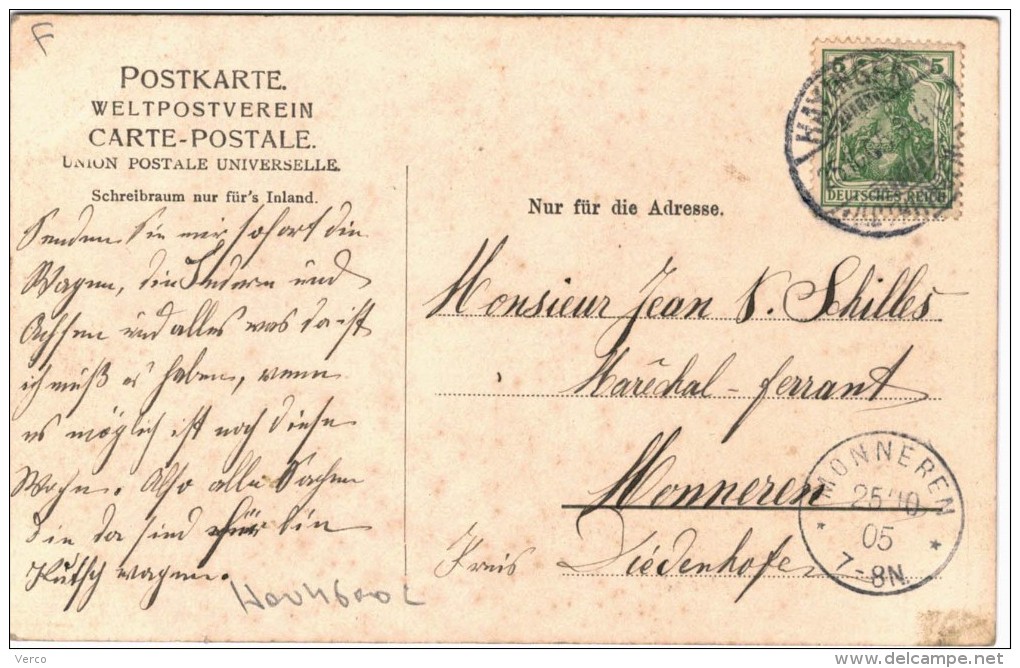 F
POSTKARTE.
WELTPOSTVEREIN
CARTE-POSTALE.
UNION POSTALE UNIVERSELLE.
Schreibraum nur für's Inland.
Senden Sie mir sofort die
Wagen, die Federn und
Achsen und alles was da ist
ich muß es haben, wenn
es möglich ist noch diese
Woche. Also alle Sachen
die da sind für
Kutschwagen.
5 5
DEUTSCHES REICH
HAYINGEN
Nur für die Adresse.
Monsieur Jean P. Schilles
Maréchal-ferrant
Monneren
Kreis Diedenhofen
MONNEREN
25 10
05
7-8N.
Verco
http://www.delcampe.net